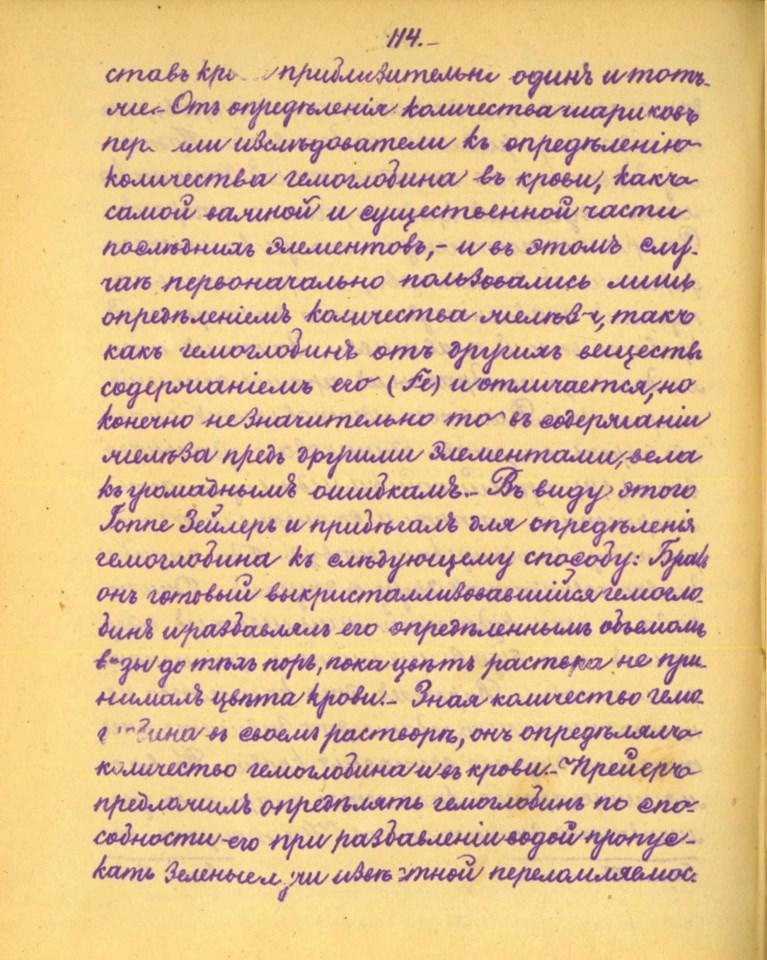 114.–
ставъ приблизительно одинъ и тотъ-
же.– Отъ опредѣленія количества шариковъ
изслѣдователи къ опредѣленію
количества гемоглобина въ крови, какъ
самой важной и существенной части
послѣднихъ элементовъ,– и въ этомъ слу-
чаѣ первоначально пользовались лишь
опредѣленіемъ количества желѣза, такъ
какъ гемоглобинъ отъ другихъ веществъ
содержаніемъ его (Fe) и отличается, но
конечно незначительно то въ содержаніи
желѣза предъ другими элементами, вела
къ громаднымъ ошибкамъ.– Въ виду этого
Гоппе Зейлеръ и прибѣгалъ для опредѣленія
гемоглобина къ слѣдующему способу: Бралъ
онъ готовый выкристаллизовавшійся гемогло-
бинъ и разбавлялъ его опредѣленнымъ объемомъ
воды до тѣхъ поръ, пока цвѣтъ раствора не при-
нималъ цвѣта крови.– Зная количество гемо-
глобина въ своемъ растворѣ, онъ опредѣлялъ
количество гемоглобина и въ крови.– Прейеръ
предложилъ опредѣлять гемоглобинъ по спо-
собности его при разбавленіи водой пропус-
кать зеленые лучи извѣстной переломляемос-